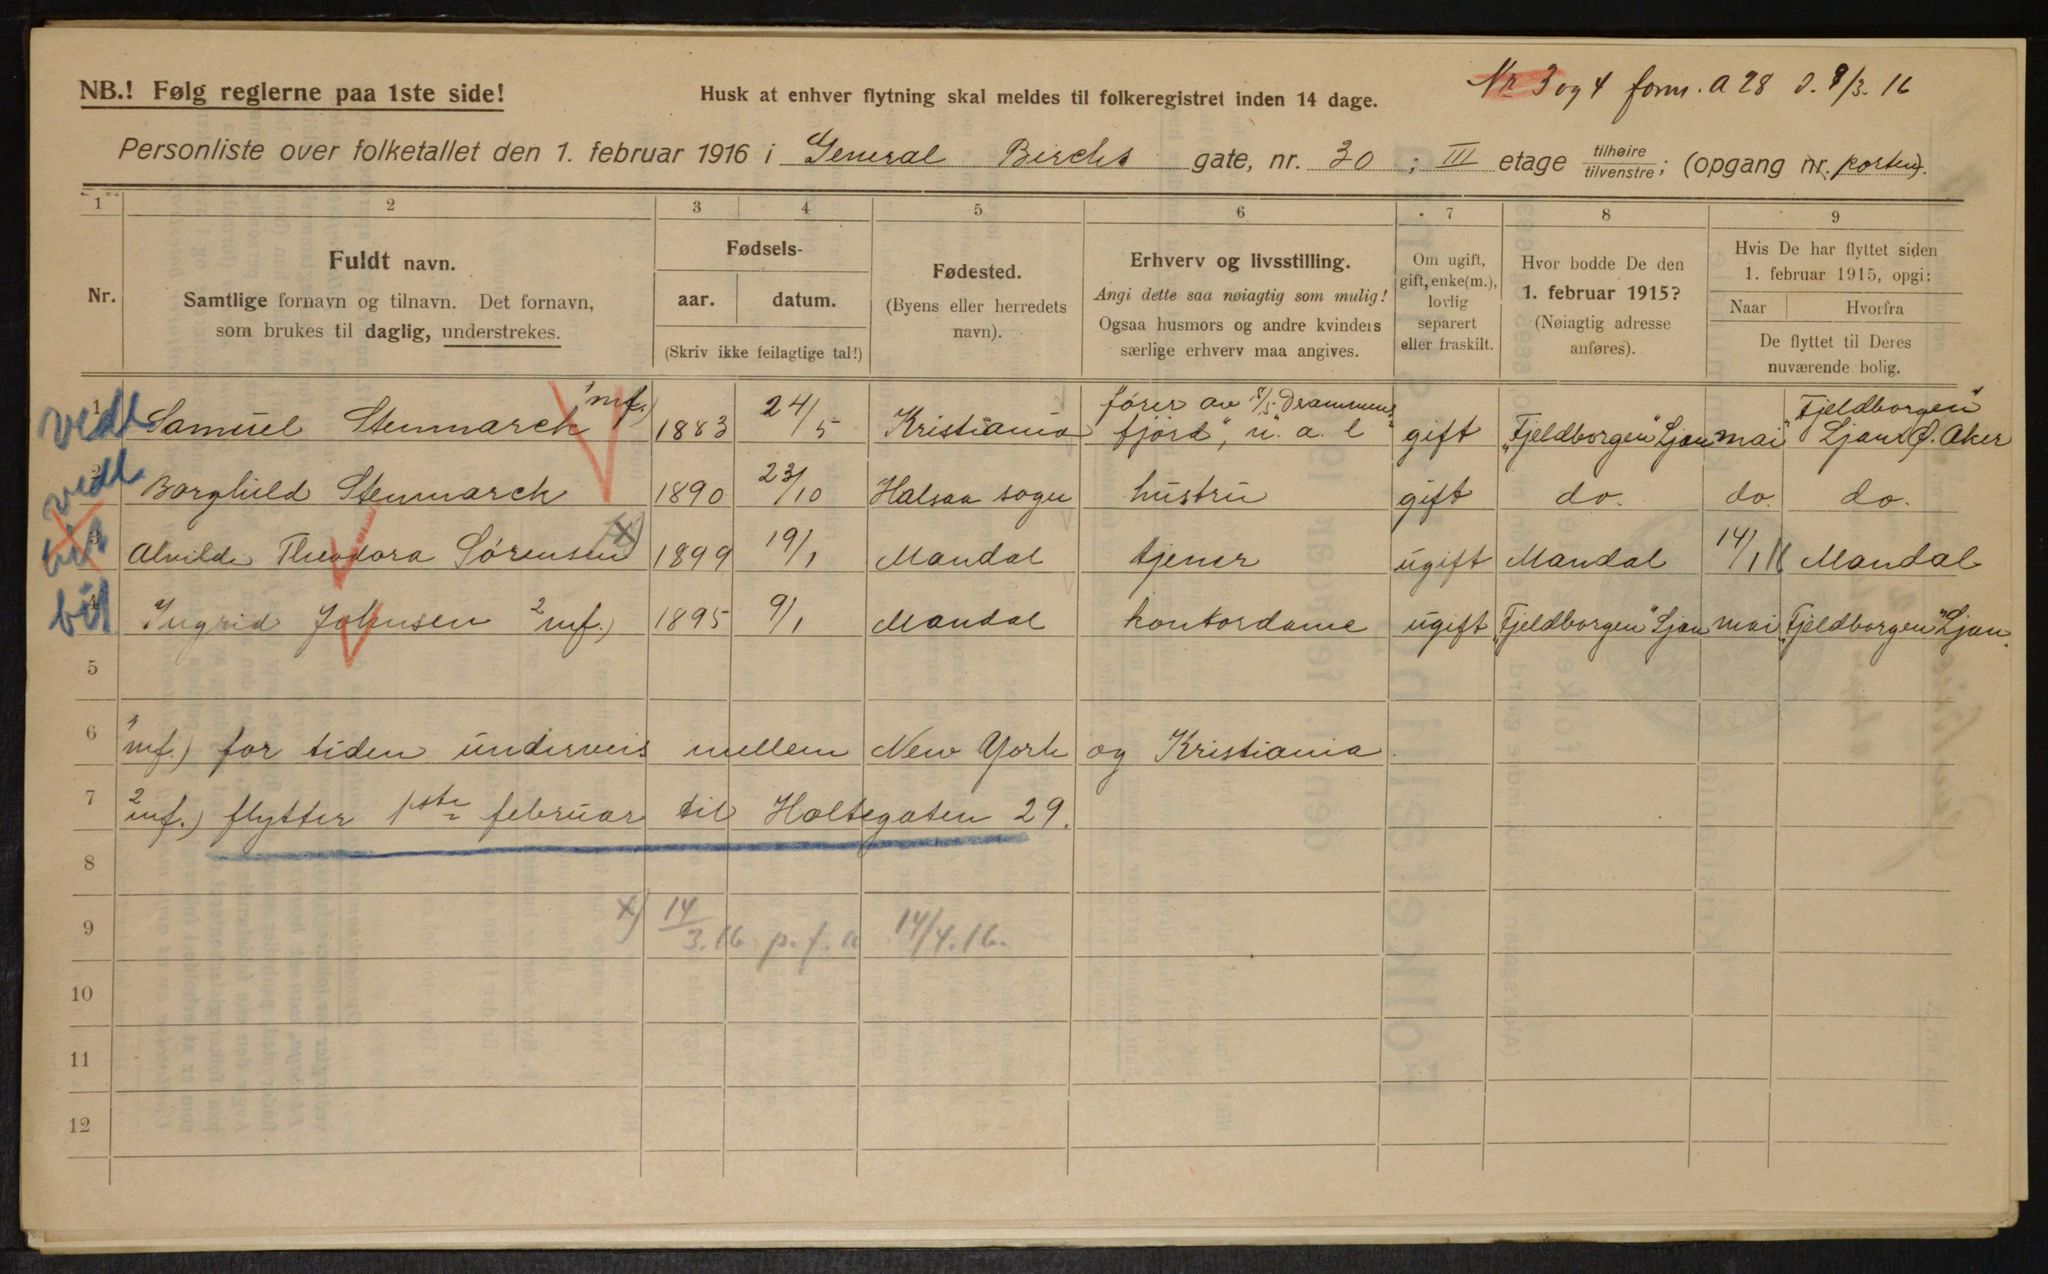 NB.! Følg reglerne paa 1ste side!
Husk at enhver flytning skal meldes til folkeregistret inden 14 dage.
Nr 3 og 4 form. A 28 d. 8/3. 16
Personliste over folketallet den 1. februar 1916 i General Birchs gate, nr. 30 ; III etage tilhøire/tilvenstre; (opgang nr. porten).
1 2 3 4 5 6 7 8 9
Nr.
Fuldt navn.
Samtlige fornavn og tilnavn. Det fornavn,
som brukes til daglig, understrekes.
Fødsels-
aar. datum.
(Skriv ikke feilagtige tal!)
Fødested.
(Byens eller herredets
navn).
Erhverv og livsstilling.
Angi dette saa nøiagtig som mulig!
Ogsaa husmors og andre kvinders
særlige erhverv maa angives.
Om ugift,
gift, enke(m.),
lovlig
separert
eller fraskilt.
Hvor bodde De den
1. februar 1915?
(Nøiagtig adresse
anføres).
Hvis De har flyttet siden
1. februar 1915, opgi:
Naar Hvorfra
De flyttet til Deres
nuværende bolig.
vedl 1 Samuel Stenmarck 1 mf.) 1883 24/5 Kristiania fører av s/s "Drammensfjord", u. a. l gift "Fjeldborgen" Ljan mai "Fjeldborgen" Ljan Ø. Aker
vedl 2 Borghild Stenmarck 1890 23/10 Halsaa sogn hustru gift do. do. do.
3 Alvilde Theodora Sørensen x) 1899 19/1 Mandal tjener ugift Mandal 14/1 16 Mandal
bil 4 Ingrid Johnsen 2 mf.) 1895 9/1 Mandal kontordame ugift "Fjeldborgen" Ljan mai "Fjeldborgen" Ljan.
5
6 1 mf.) for tiden underveis mellem New York og Kristiania.
7 2 mf.) flytter 1ste februar til Holtegaten 29.
8
9 x) 14/3.16 p. f. a 14/4.16.
10
11
12